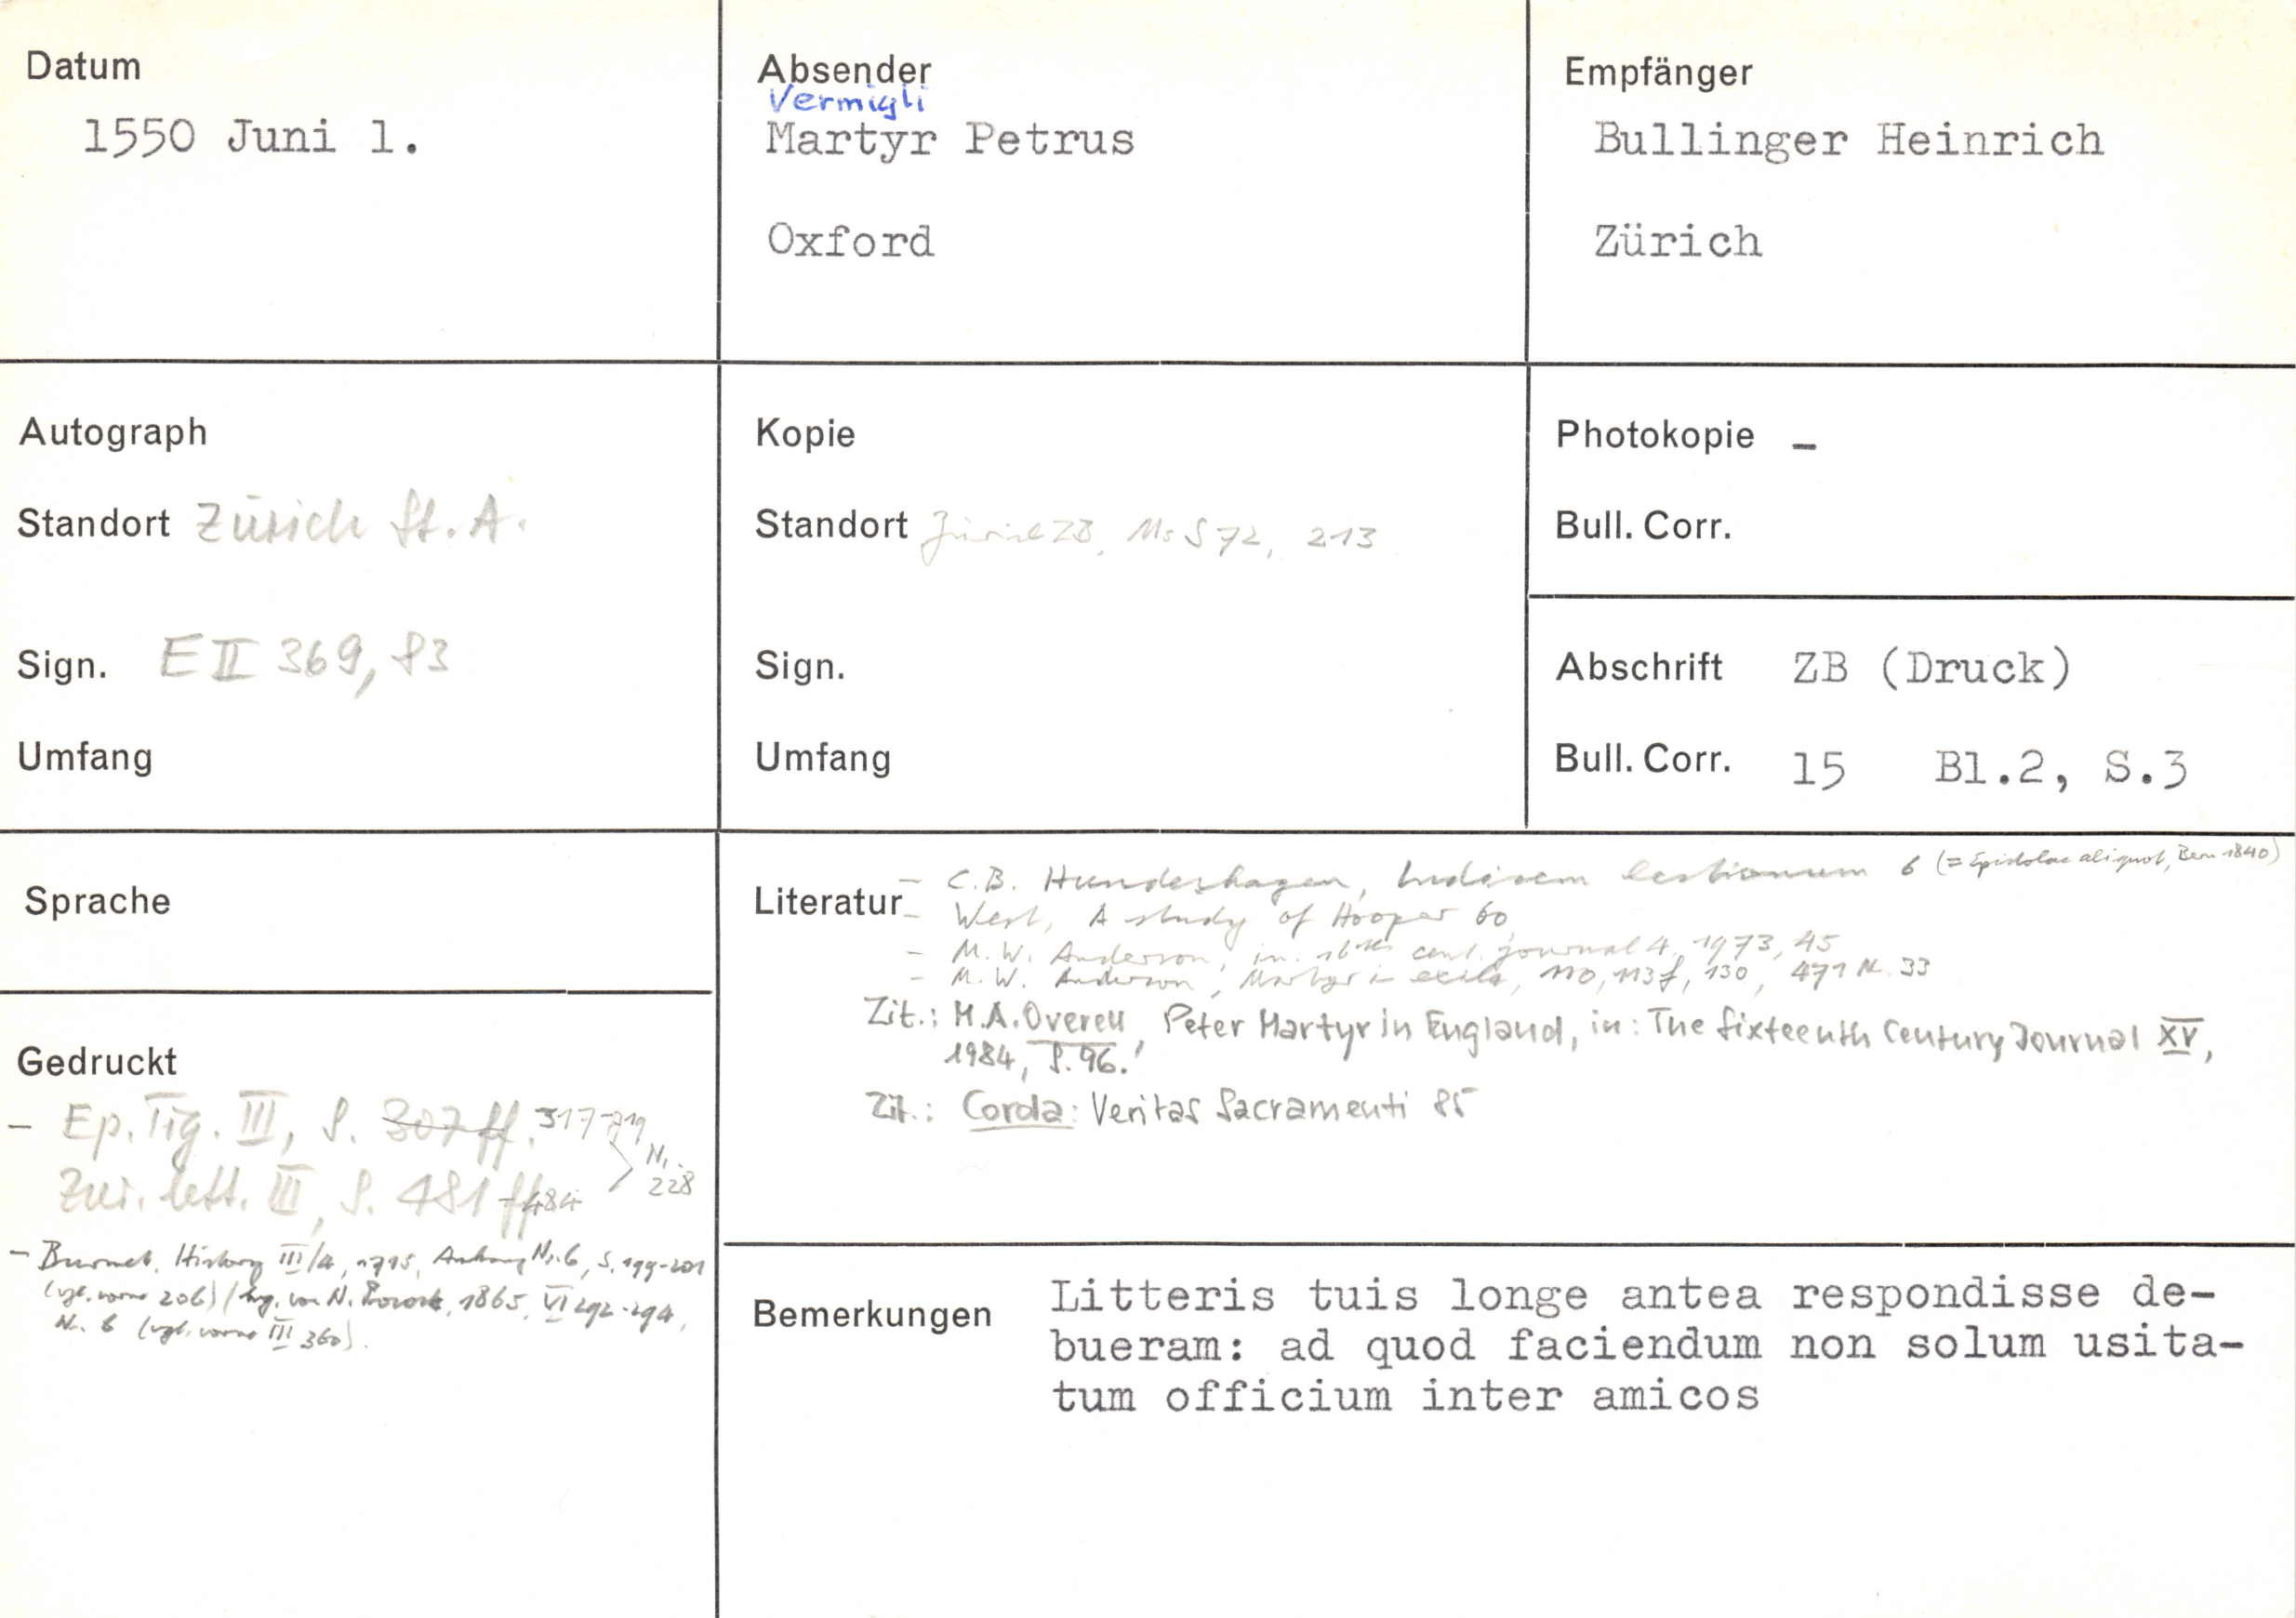 Datum
1550 Juni 1.
Absender
Vermigli
Martyr Petrus
Oxford
Empfänger
Bullinger Heinrich
Zürich
Autograph
Standort Zürich St. A.
Sign. E II 369, 83
Umfang
Kopie
Standort Zürich ZB, Ms S 72, 213
Sign.
Umfang
Photokopie –
Bull. Corr.
Abschrift ZB (Druck)
Bull. Corr. 15 Bl.2, S.3
Sprache
Gedruckt
– Ep. Tig. III, S. 307 ff. 317-319
Zur. lett. III, S. 481 ff -484
Nr. 228
– Burnet, History III/4, 1715, Anhang Nr. 6, S. 199-201
(vgl. vorne 206) / hg. von N. Pocock, 1865, VI 292-294,
Nr. 6 (vgl. vorne III 360).
Literatur
– C.B. Hundeshagen, lectionum 6 (= Epistolae aliquot, Bern 1840)
– West, A study of Hooper 60
– M.W. Anderson, in: 16th cent. journal 4, 1973, 45
– M.W. Anderson, Martyr in exile, 110, 113f, 130, 471 N. 33
Zit.: M.A. Overell, Peter Martyr in England, in: The Sixteenth Century Journal XV,
1984, S. 96.
Zit.: Corda: Veritas Sacramenti 85
Bemerkungen
Litteris tuis longe antea respondisse de-
bueram: ad quod faciendum non solum usita-
tum officium inter amicos